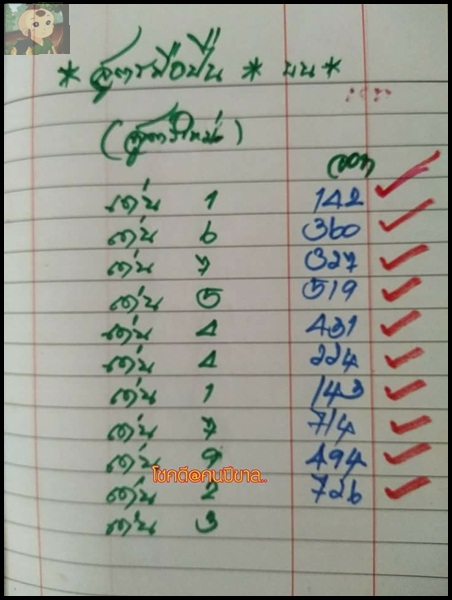 * สูตรมือปืน * บน *
(สูตรใหม่)
ออก
เด่น 1 142
เด่น 6 360
เด่น 7 327
เด่น 5 519
เด่น 4 431
เด่น 4 224
เด่น 1 143
เด่น 7 714
เด่น 9 494
โชคดี@คนปีขาล..
เด่น 2 726
เด่น 3